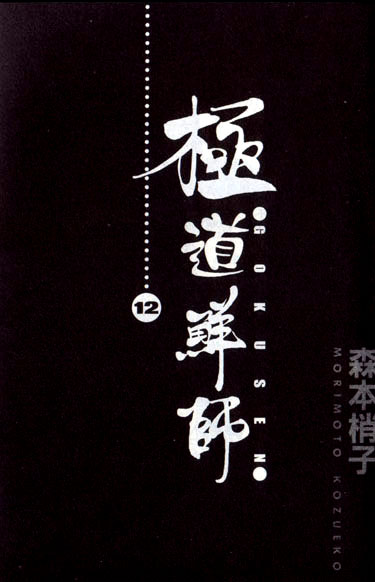 極道鮮師
GOKUSEN
12
森本梢子
MORIMOTO KOZUEKO